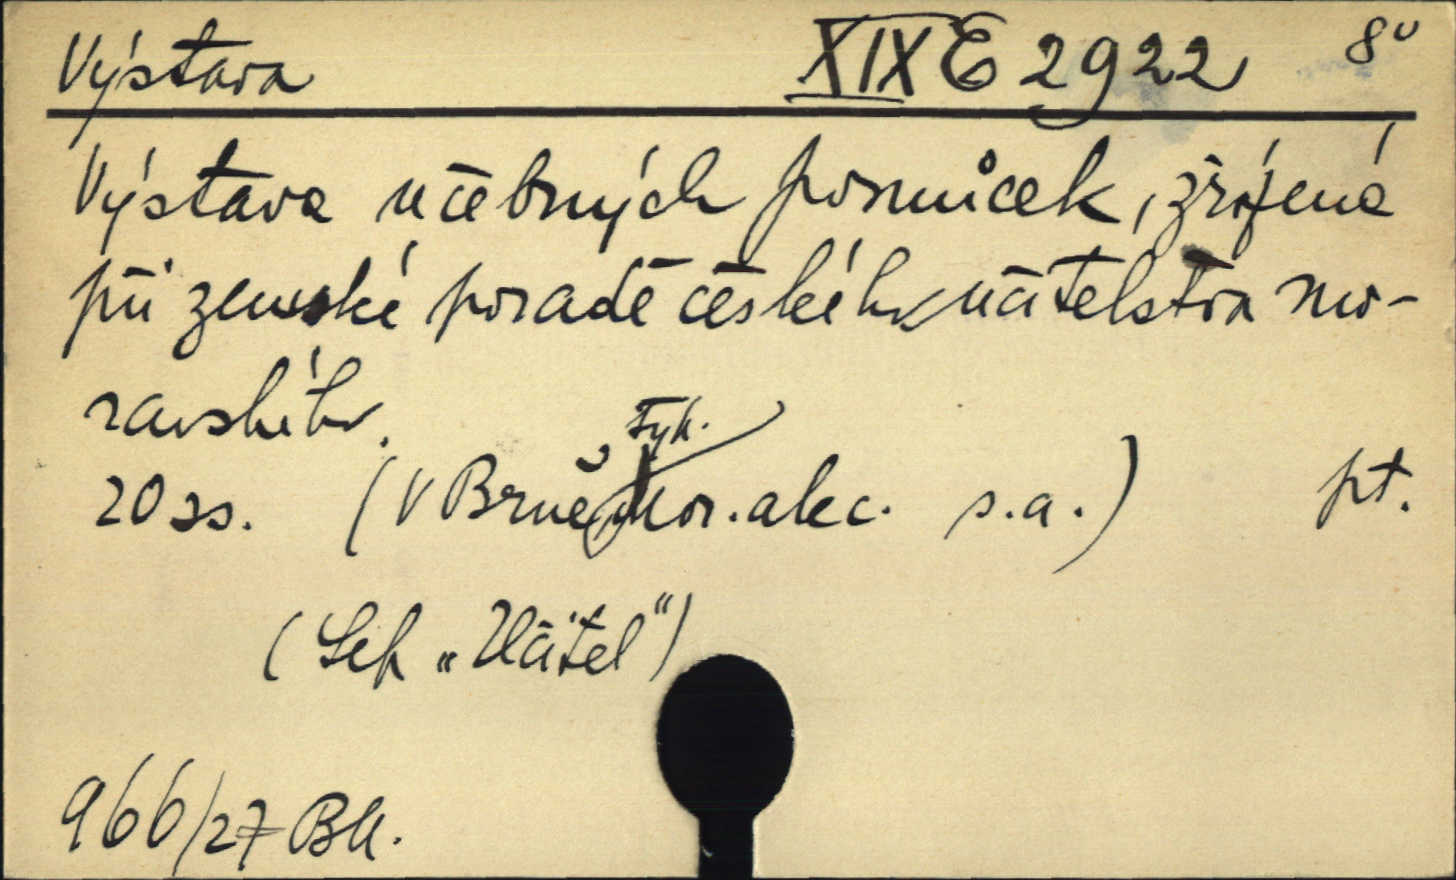 Výstava XIX E 2922 8°
Výstava učebných pomůcek, zřízená
při zemské poradě českého učitelstva mo-
ravského.
Tyk.
20 ss. (V Brně, Mor. akc. s.a.) pt.
(Sep. „Učitel“)
966/27 Bk.